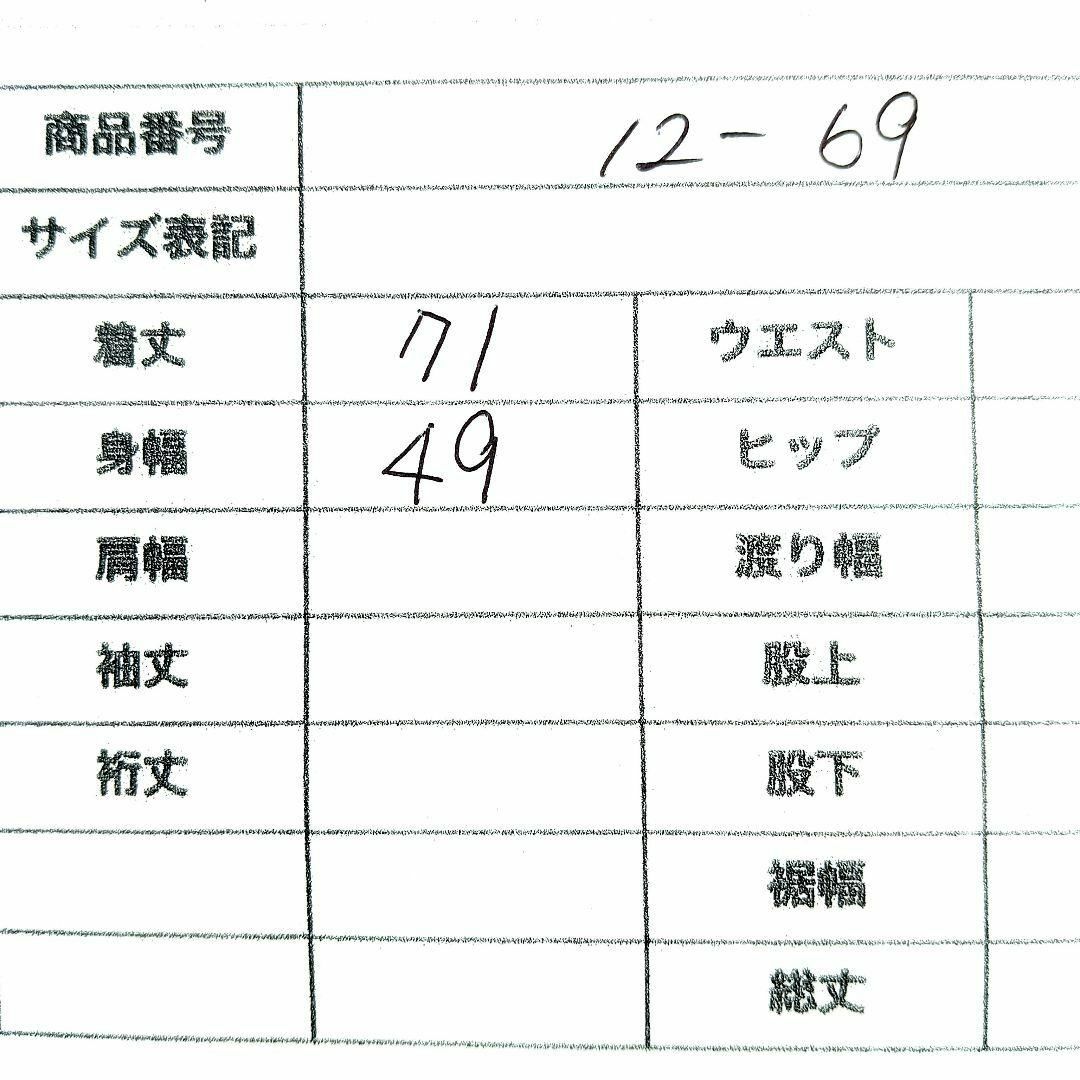 商品番号 12-69
サイズ表記
着丈 71 ウエスト
身幅 49 ヒップ
肩幅 渡り幅
袖丈 股上
裄丈 股下
裾幅
総丈